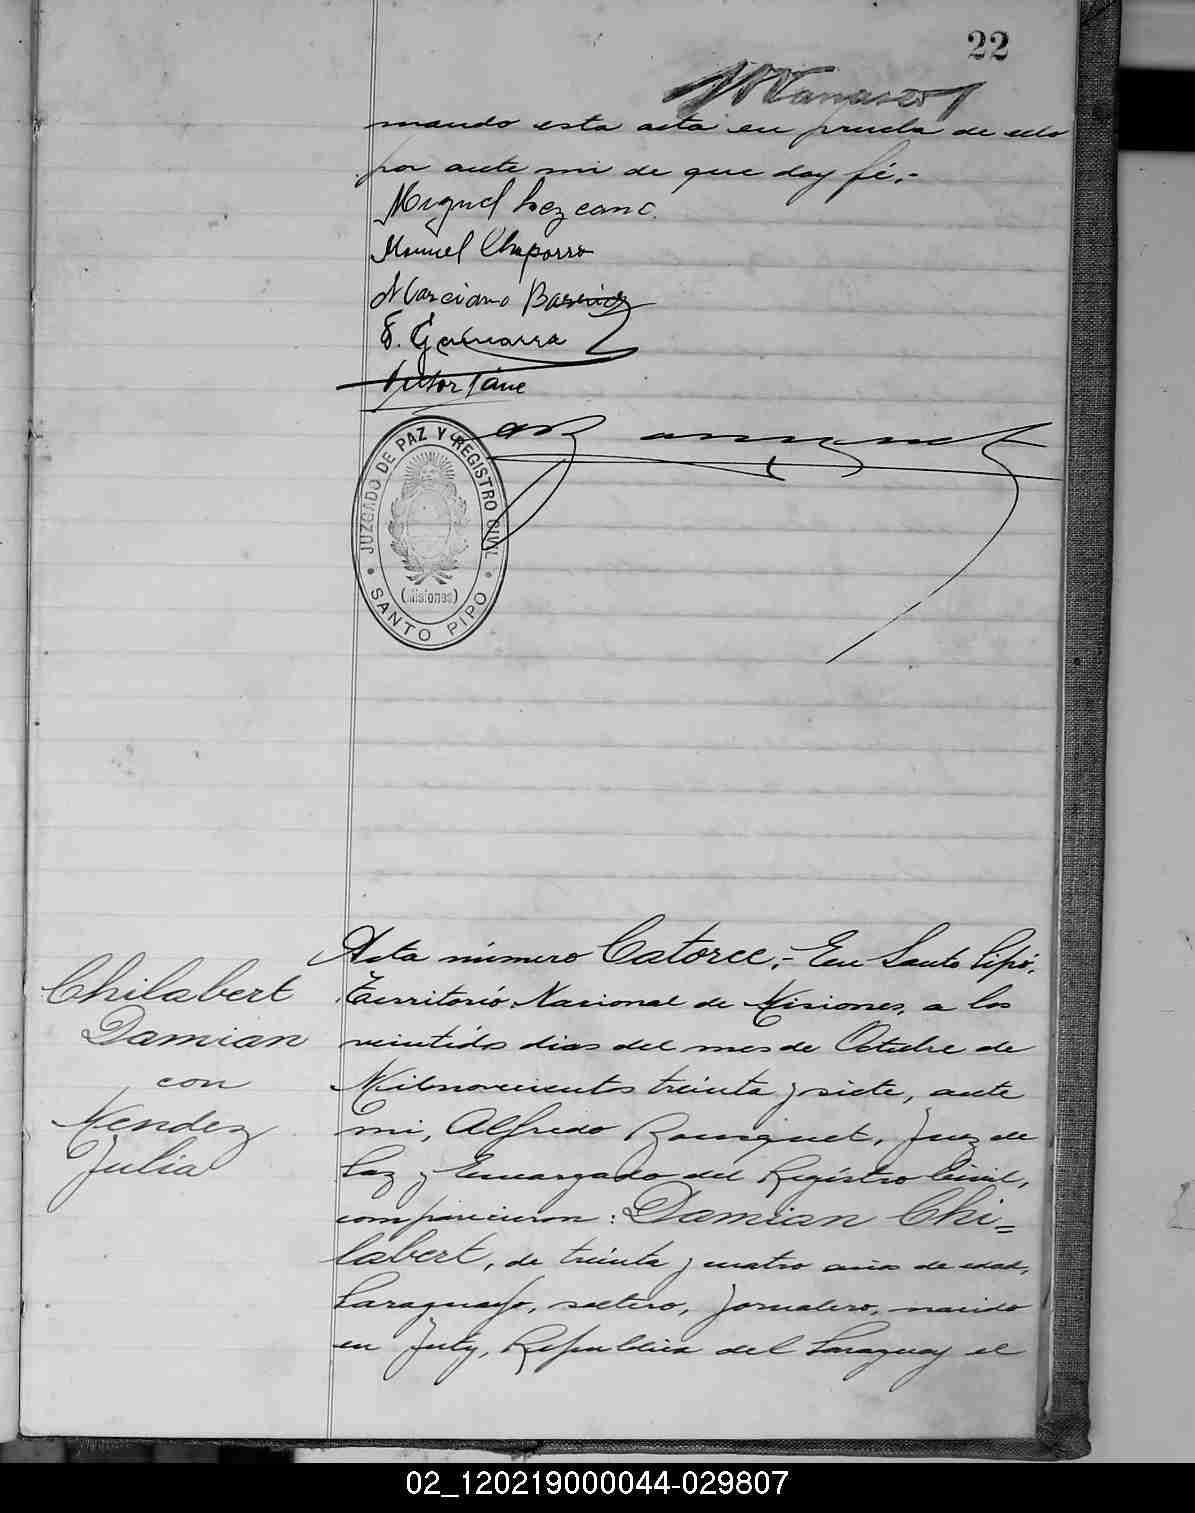 22
mando esta acta en prueba de ello
por ante mi de que doy fé.-
Miguel Lezcano.
Manuel Chaporro
Marciano Barrios
F. Gamarra
JUZGADO DE PAZ Y REGISTRO CIVIL
(Misiones)
SANTO PIPO
Chilabert
Damian
con
Mendez
Julia
Acta número Catorce.- En Santo Pipó,
Territorio Nacional de Misiones, a los
veintidós dias del mes de Octubre de
Milnovecientos treinta y siete, ante
mi, Alfredo Rousquet, Juez de
Paz y Encargado del Registro Civil,
comparecieron: Damian Chi=
labert, de treinta y cuatro años de edad,
Paraguayo, soltero, jornalero, nacido
en Juty, República del Paraguay el
02_120219000044-029807